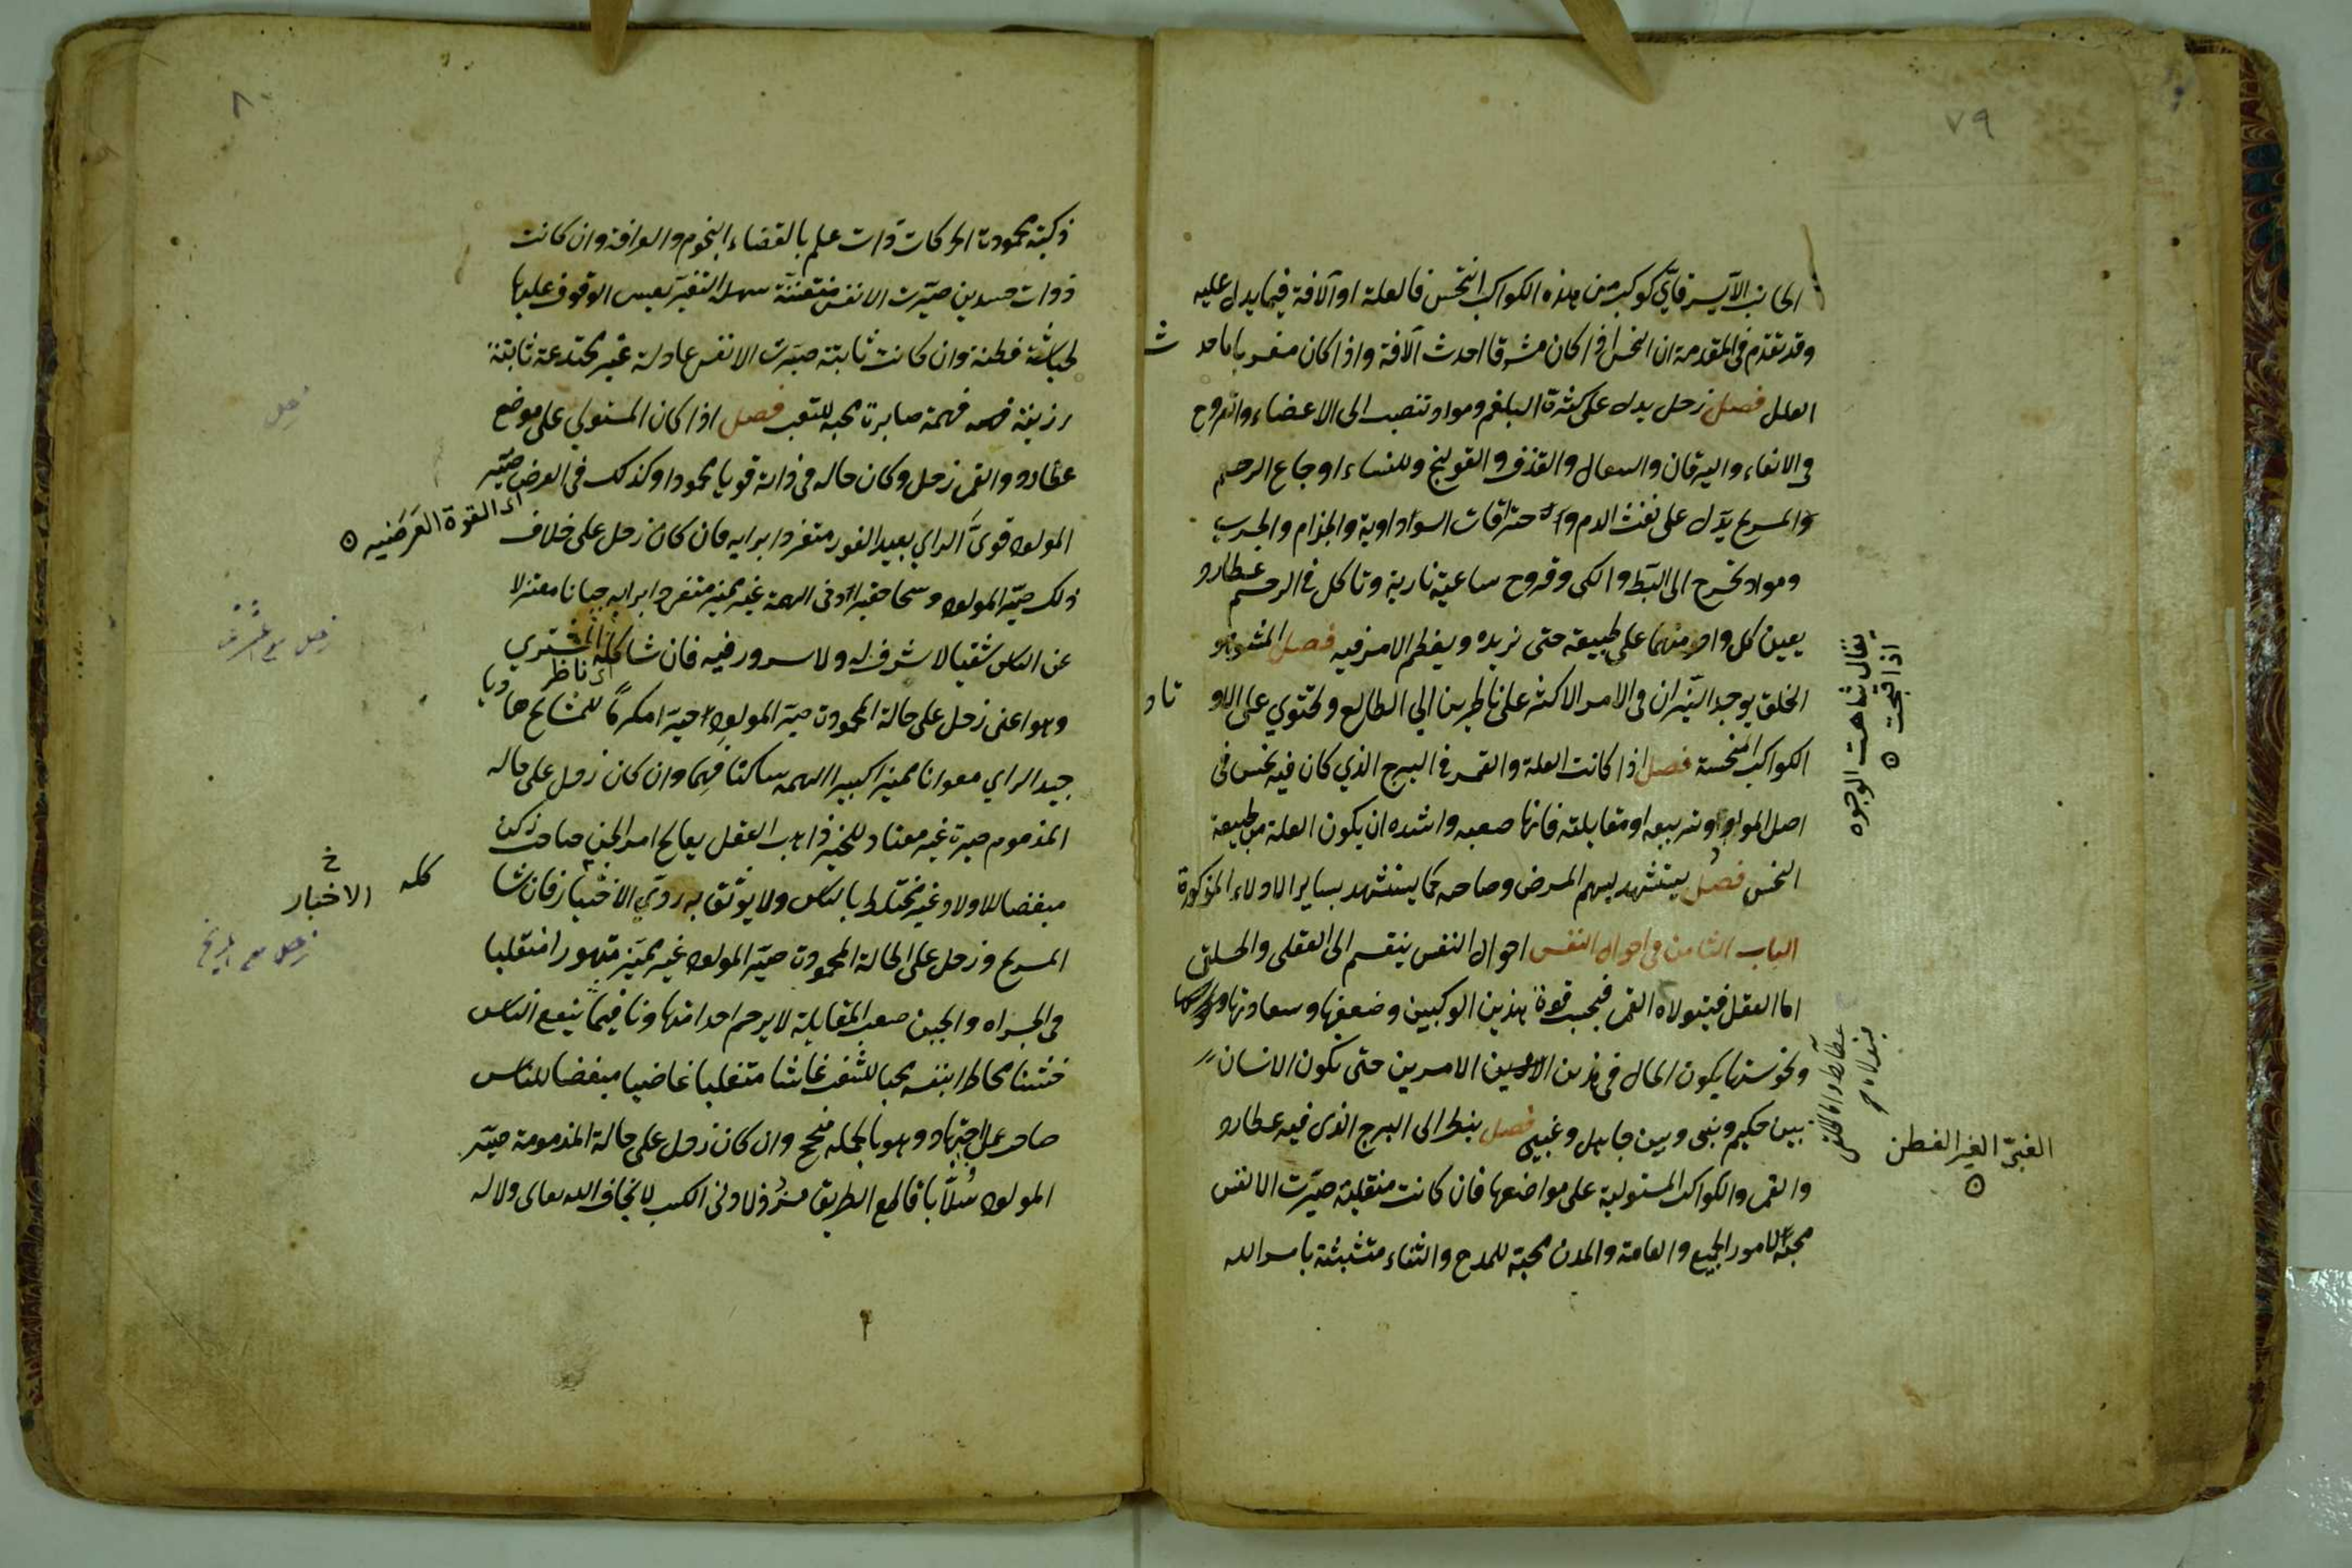 ٧٩
الجانب الأيسر فأي كوكب من هذه الكواكب انتحس فالعلة او الآفة فيما يدل عليه
وقد تقدم في المقدمة ان النحس اذا كان مشرقا احدث الآفة واذا كان مغربا احدث
العلل فصل زحل يدل على كثرة البلغم ومواد تنصب الى الاعضاء والقروح
في الامعاء واليرقان والسعال والقذف والقولنج وللنساء اوجاع الرحم
والمريخ يدل على نفث الدم والاحتراقات السوداوية والجذام والجرب
ومواد تخرج الى البط والكي وقروح ساعية نارية وتاكل في الرحم عطارد
يعين كل واحد منهما على طبيعته حتى يزيده ويعظم الامر فيه فصل المشوهو
الخلق يوجد النيران في الامر الاكثر على ناظرين الي الطالع وتحتوي على الاوتاد
الكواكب المنحسة فصل اذا كانت العلة والقمر في البرج الذي كان فيه نحس في
اصل المولد او تربيعه او مقابلته فانها صعبه واشده ان يكون العلة من طبيعة
النحس فصل يستشهد بسهم المرض وصاحبه كما يستشهد بساير الادلاء المذكورة
الباب الثامن في احوال النفس احوال النفس ينقسم الى العقلى والخلقى
اما العقل فيتولاه القمر فبحسب قوة هذين الكوكبين وضعفها وسعادتها
ونحوستها يكون الحال في هذين الامرين حتى يكون الانسان
بين حكيم ونبى وبين جاهل وغبي فصل ينظر الى البرج الذى فيه عطارد
والقمر والكواكب المستولية على مواضعها فان كانت منقلبة صيرت الانفس
محبة لامور الجميع والعامة والمدن محبة للمدح والثناء متشبثة بامر الله
يقال شاهت الوجوه
اذا قبحت
عطارد واما النفس
يتولاه
الغبي الغير الفطن
٨٠
ذكية محمودة الحركات ذات علم بالقضاء النجوم والعرافة وان كانت
ذوات جسدين صيرت الانفس متفننة سهلة التغير يعسر الوقوف عليها
لحباثة فطنة وان كانت ثابتة صيرت الانفس عادلة غير مختدعة ثابتة
رزينة فهمة صابرة محبة للتعب فصل اذا كان المستولي على موضع
عطارد والقمر زحل وكان حاله في ذاته قويا محمودا وكذلك في العرض صير
اى القوة العرضيه
المولود قوي الراي بعيد الغور متفردا برايه فان كان زحل على خلاف
ذلك صير المولود وسخا حقيرا دنى الهمة غير مميز متفردا برايه جبانا معتزلا
عن الناس شقيا لا شرف له ولا سرور فيه فان شاكله المشتري
اى ناظر
وهو اعنى زحل على حالة المحمودة صير المولود مكرما للمشايخ هاديا
جيد الراي معوانا مميزا كبير الهمه ساكنا فهما وان كان زحل على حاله
المذمومه صيره غير معتاد للخير ذاهب العقل يعالج امر الجن صاحب
مبغضا للاولاد غير مختلط بالناس ولا يوثق به ردي الاختيار فان شاكله
المريخ وزحل على الحالة المحمودة صير المولود غير مميز متهورا متقلبا
في الجراه والجبن صعب المقابلة لا يرحم احدا متهاونا فيما ينفع الناس
خشنا مخاطرا بنفسه محبا للشغب غاشا متغلبا غاضبا مبغضا للناس
صاحب عمل واجتهاد وهو بالجمله منجح وان كان زحل على حالة المذمومة صير
المولود سلابا قاطع الطريق دنى الكسب لا يخاف الله تعالى ولا له
زحل
زحل مع المشترى
خ
الاخبار
زحل مع المريخ